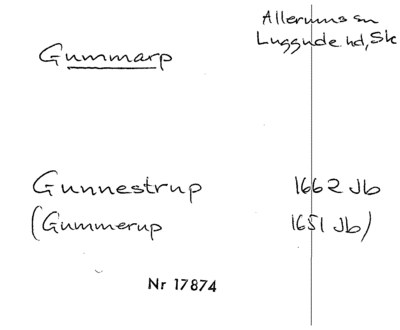 Allerums sn
Luggude hd, Sk
Gummarp
Gunnestrup 1662 Jb
(Gummerup 1651 Jb)
Nr 17874